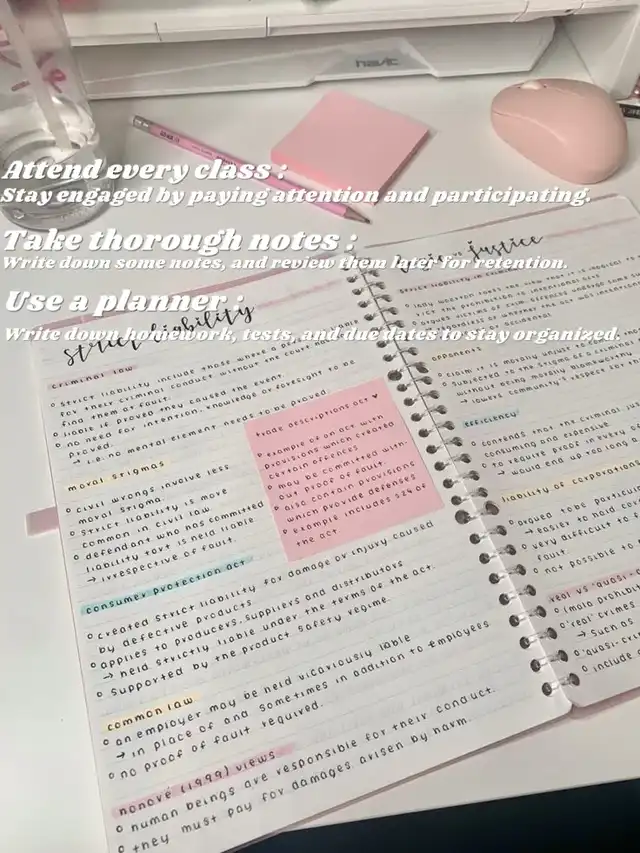 havit
Attend every class :
Stay engaged by paying attention and participating.
Take thorough notes :
Write down some notes, and review them later for retention.
Use a planner :
Write down homework, tests, and due dates to stay organized.
Strict Liability
criminal law
strict liability include those where a
for their criminal conduct without the court
find them at fault.
liable if proved they caused the event.
no need for intention, knowledge or foresight to be
proved.
→ i.e. no mental element needs to be proved.
moral stigmas
civil wrongs involve less
moral stigma.
strict liability is more
common in civil law
defendant who has committed
liability tort is held liable
→ irrespective of fault.
trade descriptions act ♥
example of an act with
provisions which created
certain offences
may be committed with-
out proof of fault.
also contain provisions
which provide defenses
example includes s24 of
the act
consumer protection act
created strict liability for damage or injury caused
by defective products.
applies to producers, suppliers and distributors
→ held strictly liable under the terms of the act.
supported by the product safety regime.
common law
an employer may be held vicariously liable
→ in place of and sometimes in addition to employees
no proof of fault required.
honoré (1999) views
human beings are responsible for their conduct.
they must pay for damages arisen by harm.
justice
opponents
claim it is morally
subjected to the stigma of a
without being morally
→ lowers community's respect for
efficiency
contends that the criminal
consuming and expensive
to require proof in every
→ would end up too long
liability of corporations
argued to be
→ easier to hold
very difficult to
fault.
not possible to
real vs quasi-
(mala prohib
'real' crimes
→ such as
'quasi-cr
include